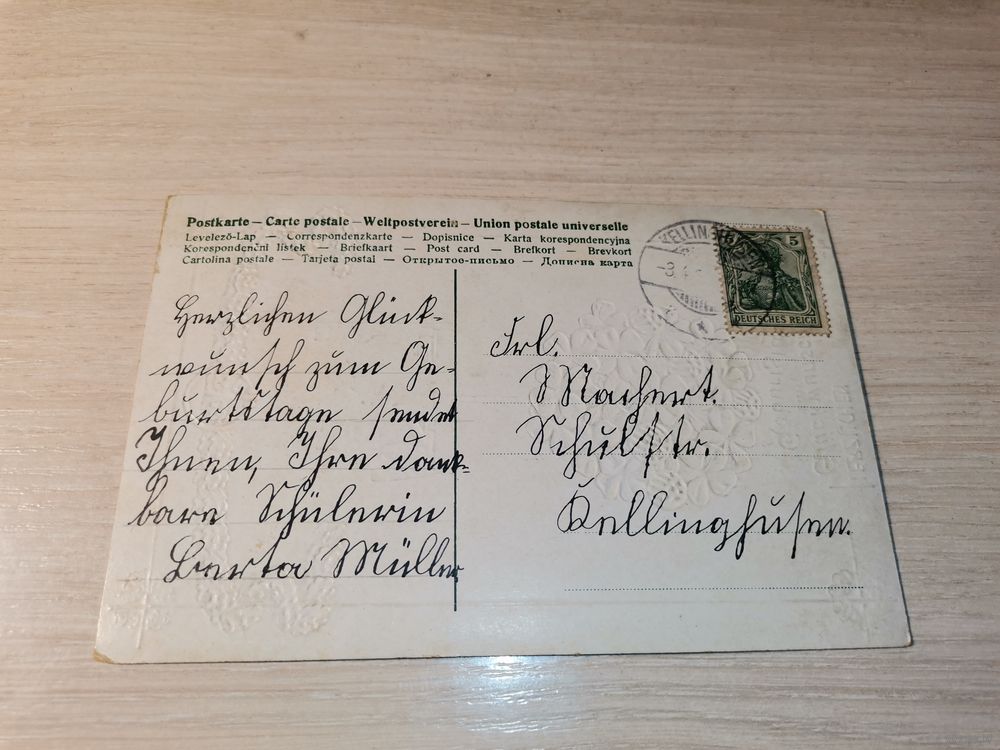 Postkarte — Carte postale — Weltpostverein — Union postale universelle
Levelező-Lap — Correspondenzkarte — Dopisnice — Karta korespondencyjna
Korespondenční lístek — Briefkaart — Post card — Brefkort — Brevkort
Cartolina postale — Tarjeta postal — Открытое-письмо — Дописна карта
Herzlichen Glück-
wunsch zum Ge-
burtstage sendet
Ihnen, Ihre dank-
bare Schülerin
Berta Müller
5
DEUTSCHES REICH
Frl.
Machert.
Schulstr.
Kellinghusen.